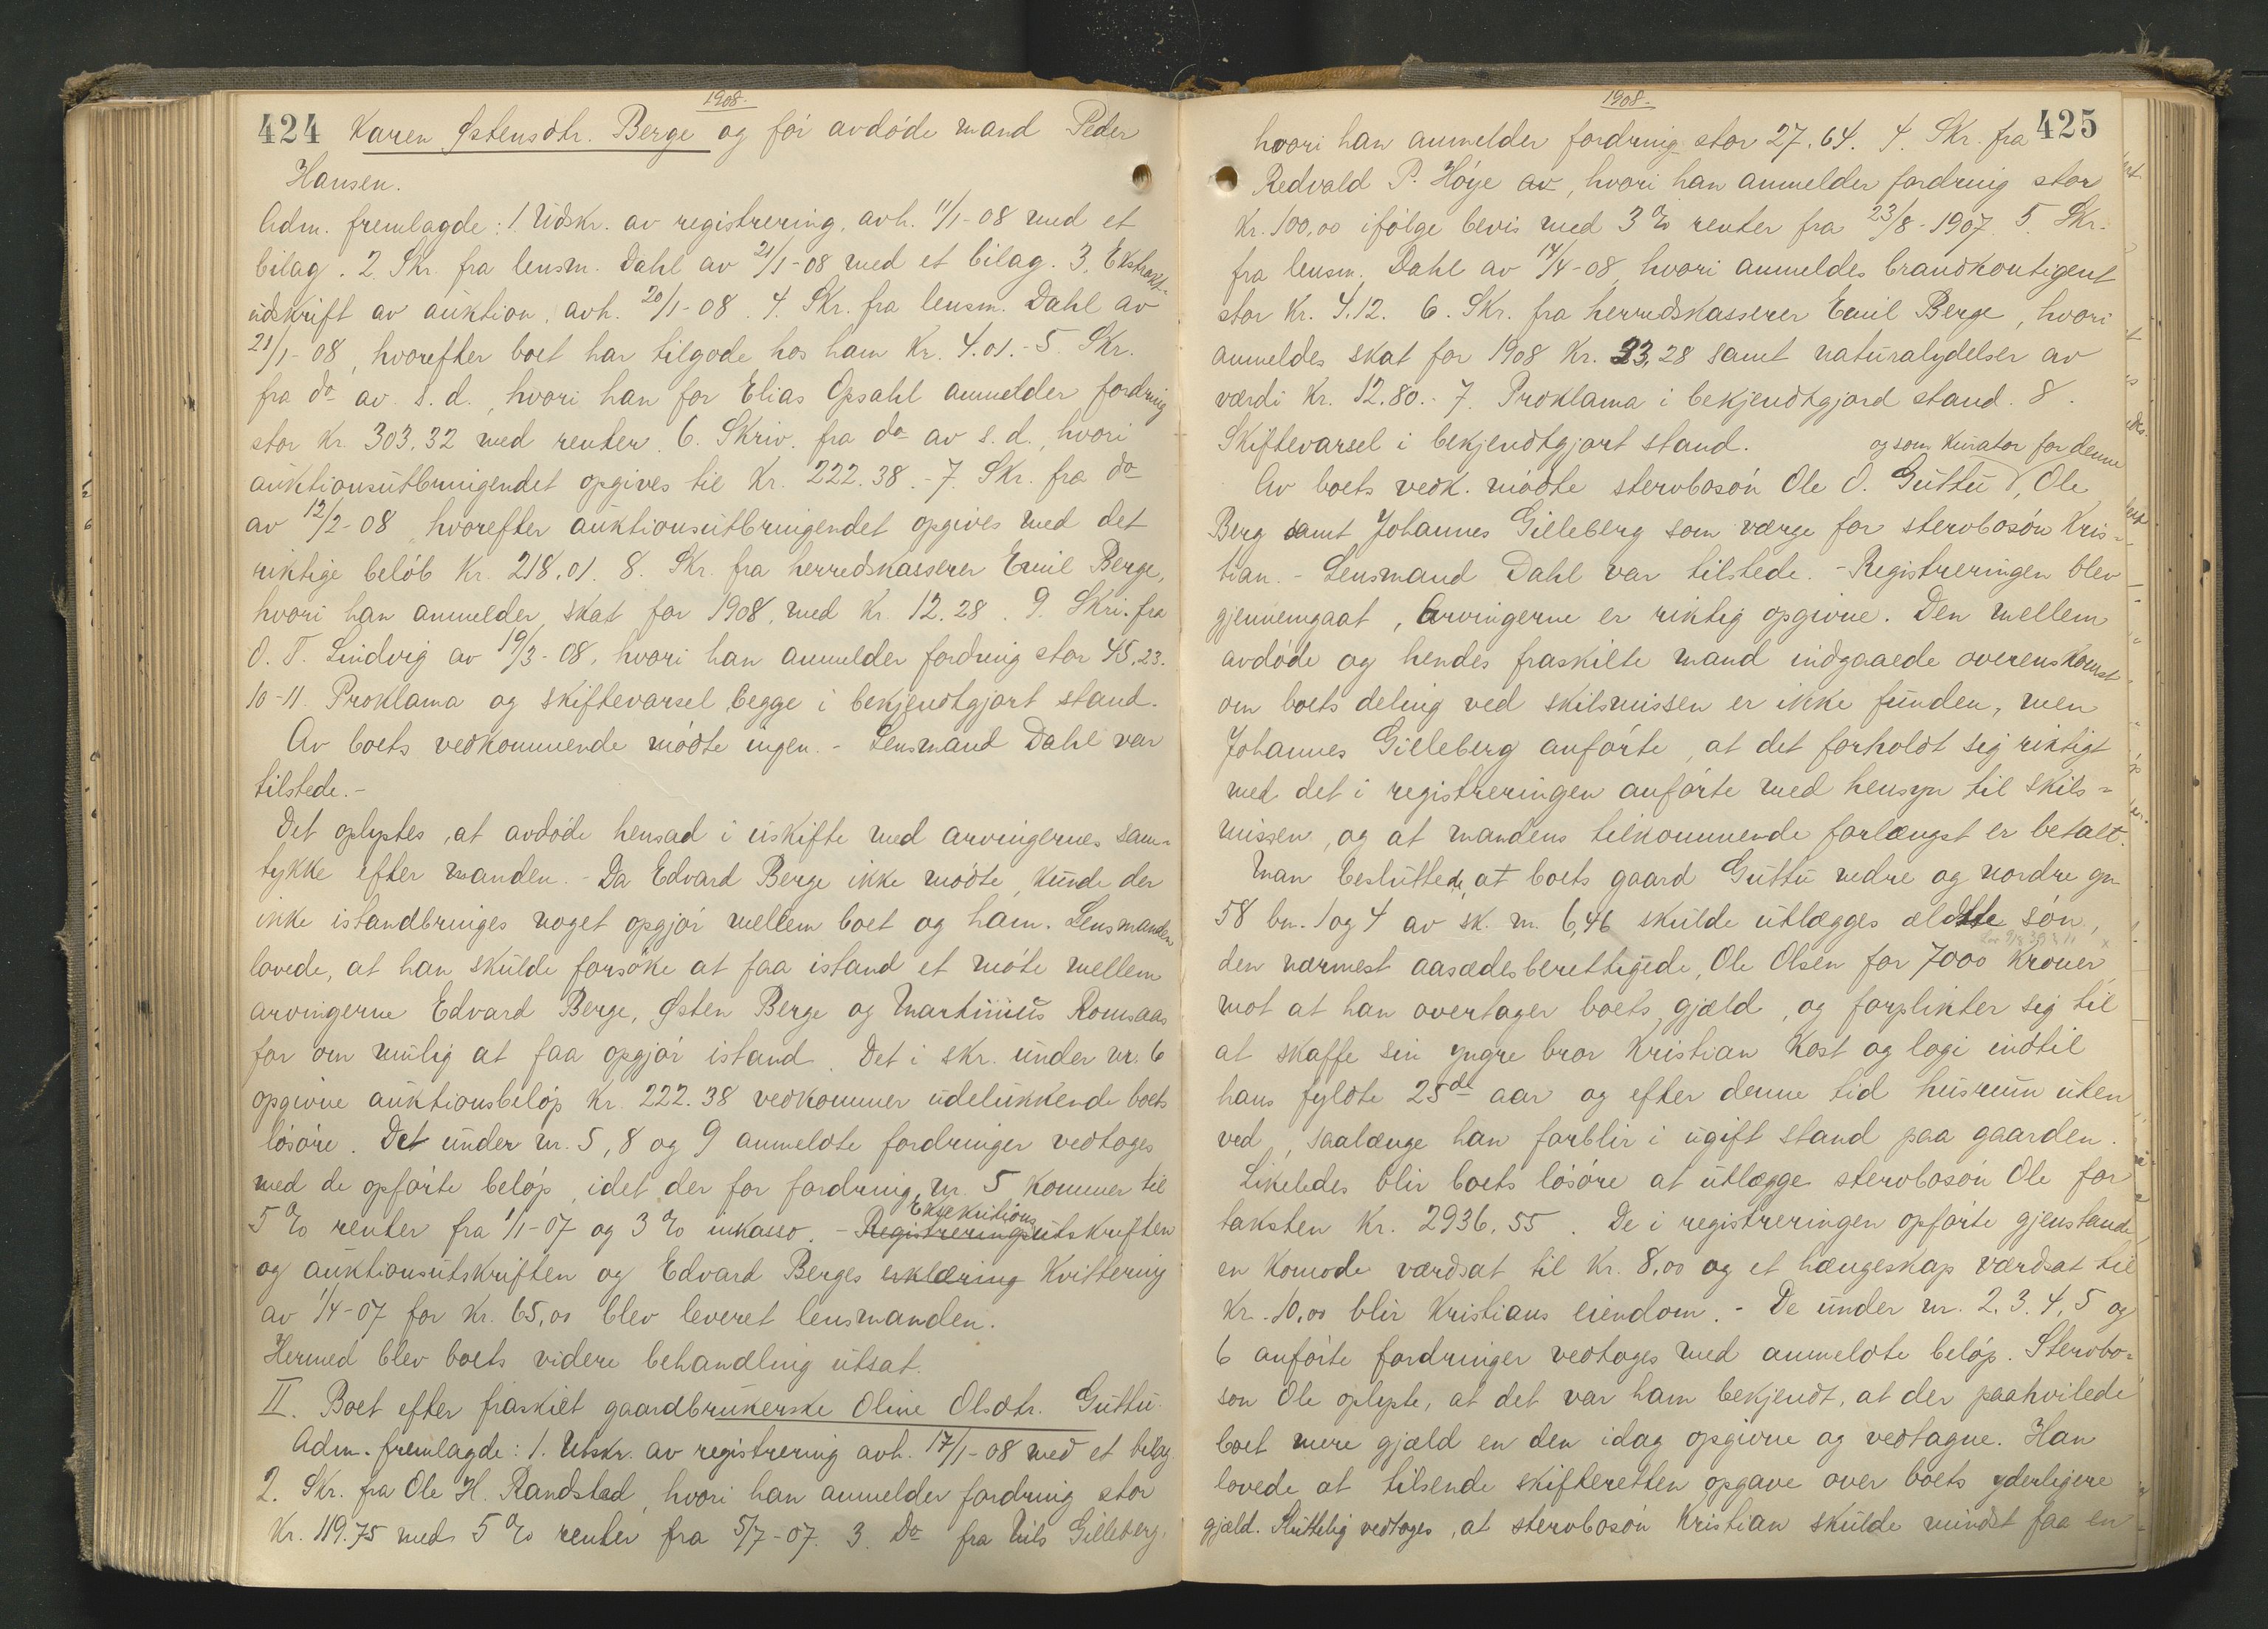 1908.
424 Karen Østensdtr. Berge og før avdøde mand Peder
Hansen.
Adm. fremlagde: 1. Udskr. av registrering, avh. 11/1-08 med et
bilag. 2. Skr. fra lensm. Dahl av 21/1-08 med et bilag. 3. Ekstrakt-
udskrift av auktion, avh. 20/1-08. 4. Skr. fra lensm. Dahl av
21/1-08, hvorefter boet har tilgode hos ham Kr. 4.01.- 5. Skr.
fra do av s.d., hvori han for Elias Opsahl anmelder fordring
stor Kr. 303.32 med renter. 6. Skriv. fra do av s.d., hvori
auktionsutbringendet opgives til Kr. 222.38.- 7. Skr. fra do
av 12/2-08, hvorefter auktionsutbringendet opgives med det
riktige beløb Kr. 218.01. 8. Skr. fra herredskasserer Emil Berge,
hvori han anmelder skat for 1908, med Kr. 12.28. 9. Skri. fra
O. T. Lindvig av 19/3-08, hvori han anmelder fordring stor 45,23.
10-11. Proklama og skiftevarsel begge i bekjendtgjort stand.
Av boets vedkommende mødte ingen. - Lensmand Dahl var
tilstede.-
Det oplystes, at avdøde hensad i uskifte med arvingernes sam-
tykke efter manden. - Da Edvard Berge ikke mødte, kunde der
ikke istandbringes noget opgjør mellem boet og ham. Lensmanden
lovede, at han skulde forsøke at faa istand et møte mellem
arvingerne Edvard Berge, Østen Berge og Martinius Romsaas
for om mulig at faa opgjør istand. Det i skr. under nr. 6
opgivne auktionsbeløp Kr. 222.38 vedkommer udelukkende boets
løsøre. Det under nr. 5, 8 og 9 anmeldte fordringer vedtoges
med de opførte beløp, idet der for fordring nr. 5 kommer til
5 % renter fra 1/1-07 og 3 % inkasso. - Registrerings Eksekutionsutskriften
og auktionsutskriften og Edvard Berges erklæring Kvittering
av 1/4-07 for Kr. 65,00 blev leveret lensmanden.
Hermed blev boets videre behandling utsat.
II. Boet efter fraskilt gaardbrukerske Oline Olsdtr. Guttu.
Adm. fremlagde: 1. Utskr. av registrering avh. 17/1-08 med et bilag.
2. Skr. fra Ole H. Randstad, hvori han anmelder fordring stor
Kr. 119.75 med 5 % renter fra 5/7-07. 3. Do fra Nils Gilleberg,
1908.
425
hvori han anmelder fordring stor 27.64. 4. Skr. fra
Redvald P. Høye av, hvori han anmelder fordring stor
Kr. 100,00 ifølge bevis med 3 % renter fra 23/8-1907. 5. Skr.
fra lensm. Dahl av 14/4-08, hvori anmeldes brandkontigent
stor Kr. 4.12. 6. Skr. fra herredskasserer Emil Berge, hvori
anmeldes skat for 1908 Kr. 33,28 samt naturalydelser av
værdi Kr. 12.80.- 7. Proklama i bekjendtgjord stand. 8.
Skiftevarsel i bekjendtgjort stand.
og som kurator for denne
Av boets vedk. mødte stervbosøn Ole O. Guttu, Ole
Berg samt Johannes Gilleberg som værge for stervbosøn Kris-
tian. - Lensmand Dahl var tilstede. - Registreringen blev
gjennemgaat, Arvingerne er riktig opgivne. Den mellem
avdøde og hendes fraskilte mand indgaaede overenskomst
om boets deling ved skilsmissen er ikke funden, men
Johannes Gilleberg anførte, at det forholdt sig riktigt
med det i registreringen anførte med hensyn til skils-
missen, og at mandens tilkommende forlængst er betalt.
Man besluttede, at boets gaard Guttu nedre og nordre gn.
58 bn. 1 og 4 av sk. m. 6,46 skulde utlægges ældste søn,
den nærmest aasædesberettigede, Ole Olsen for 7000 kroner
mot at han overtager boets gjæld, og forplikter sig til
at skaffe sin yngre bror Kristian kost og logi indtil
hans fyldte 25de aar og efter denne tid husrum uten
ved, saalænge han forblir i ugift stand paa gaarden.
Likeledes blir boets løsøre at utlægge stervbosøn Ole for
taksten Kr. 2936,55. De i registreringen opførte gjenstande
en komode værdsat til Kr. 8,00 og et hængeskap værdsat til
Kr. 10,00 blir Kristians eiendom. - De under nr. 2. 3. 4, 5 og
6 anførte fordringer vedtoges med anmeldte beløp. Stervbo-
søn Ole oplyste, at det var ham bekjendt, at der paahvilede
boet mere gjæld en den idag opgivne og vedtagne. Han
lovede at tilsende skifteretten opgave over boets yderligere
gjæld. Sluttelig vedtoges, at stervbosøn Kristian skulde mindst faa en